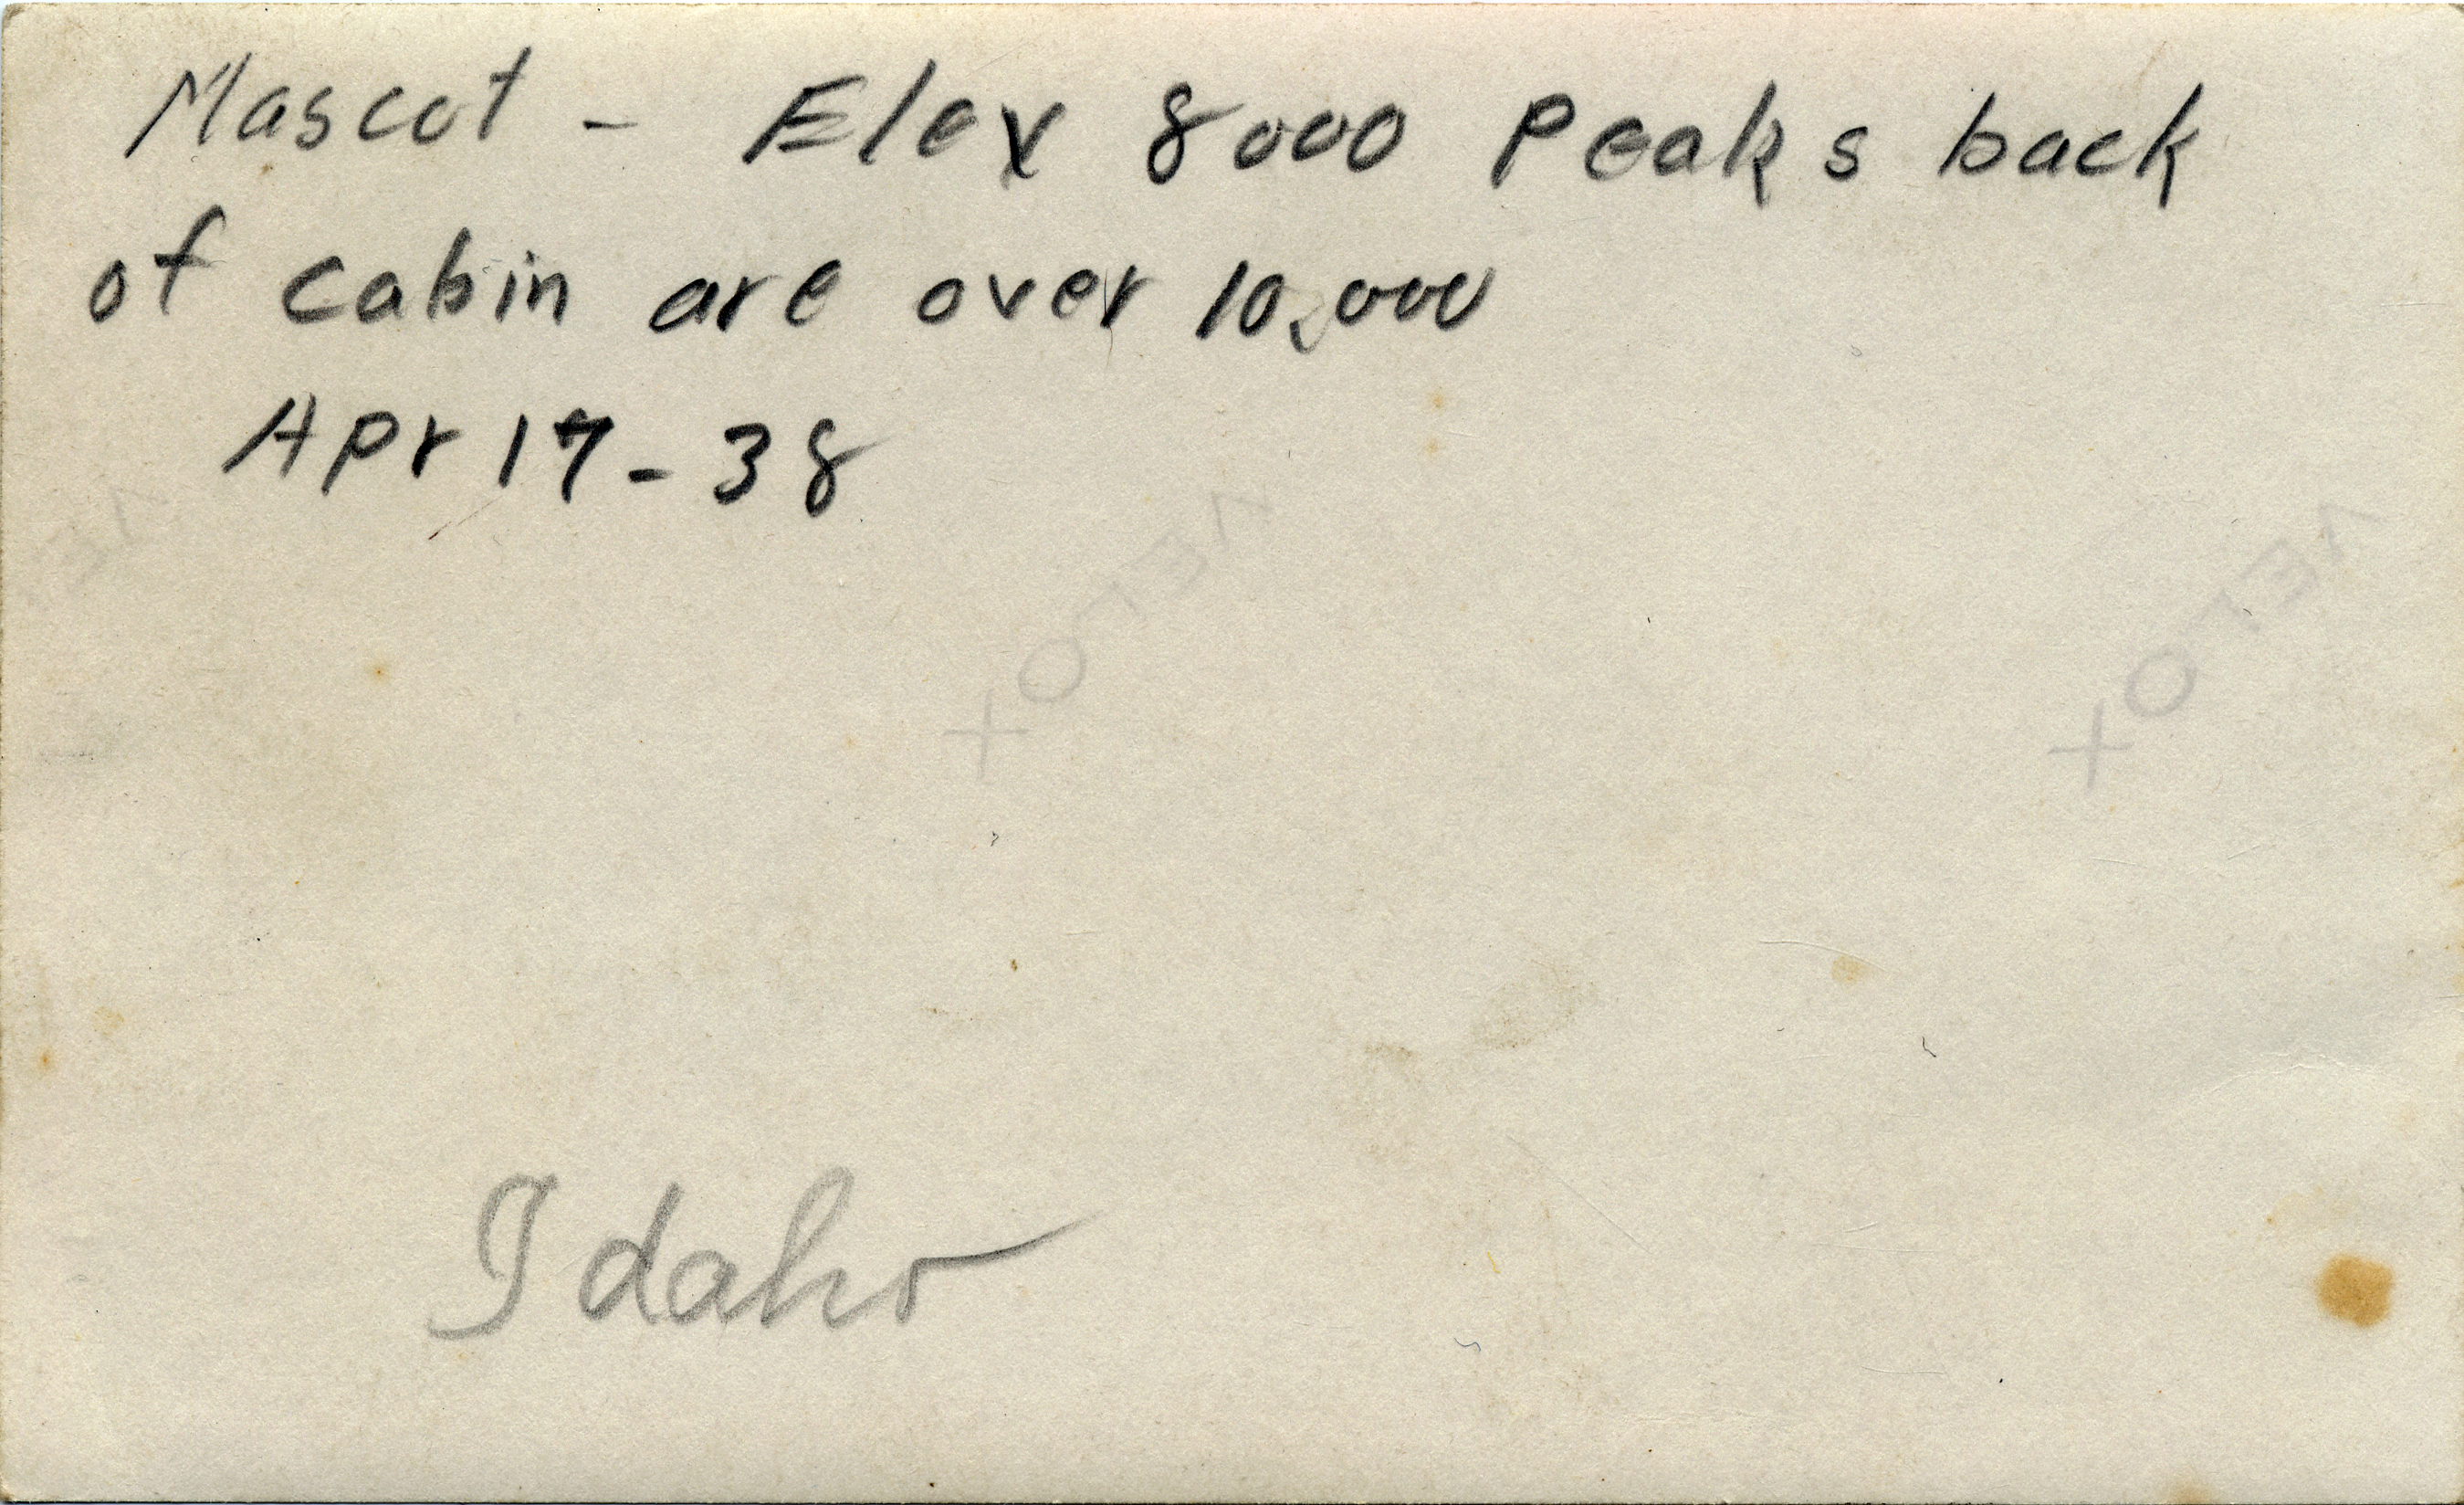 Mascot - Elev 8000 Peaks back
of cabin are over 10,000
Apr 17-38
VELOX
VELOX
Idaho